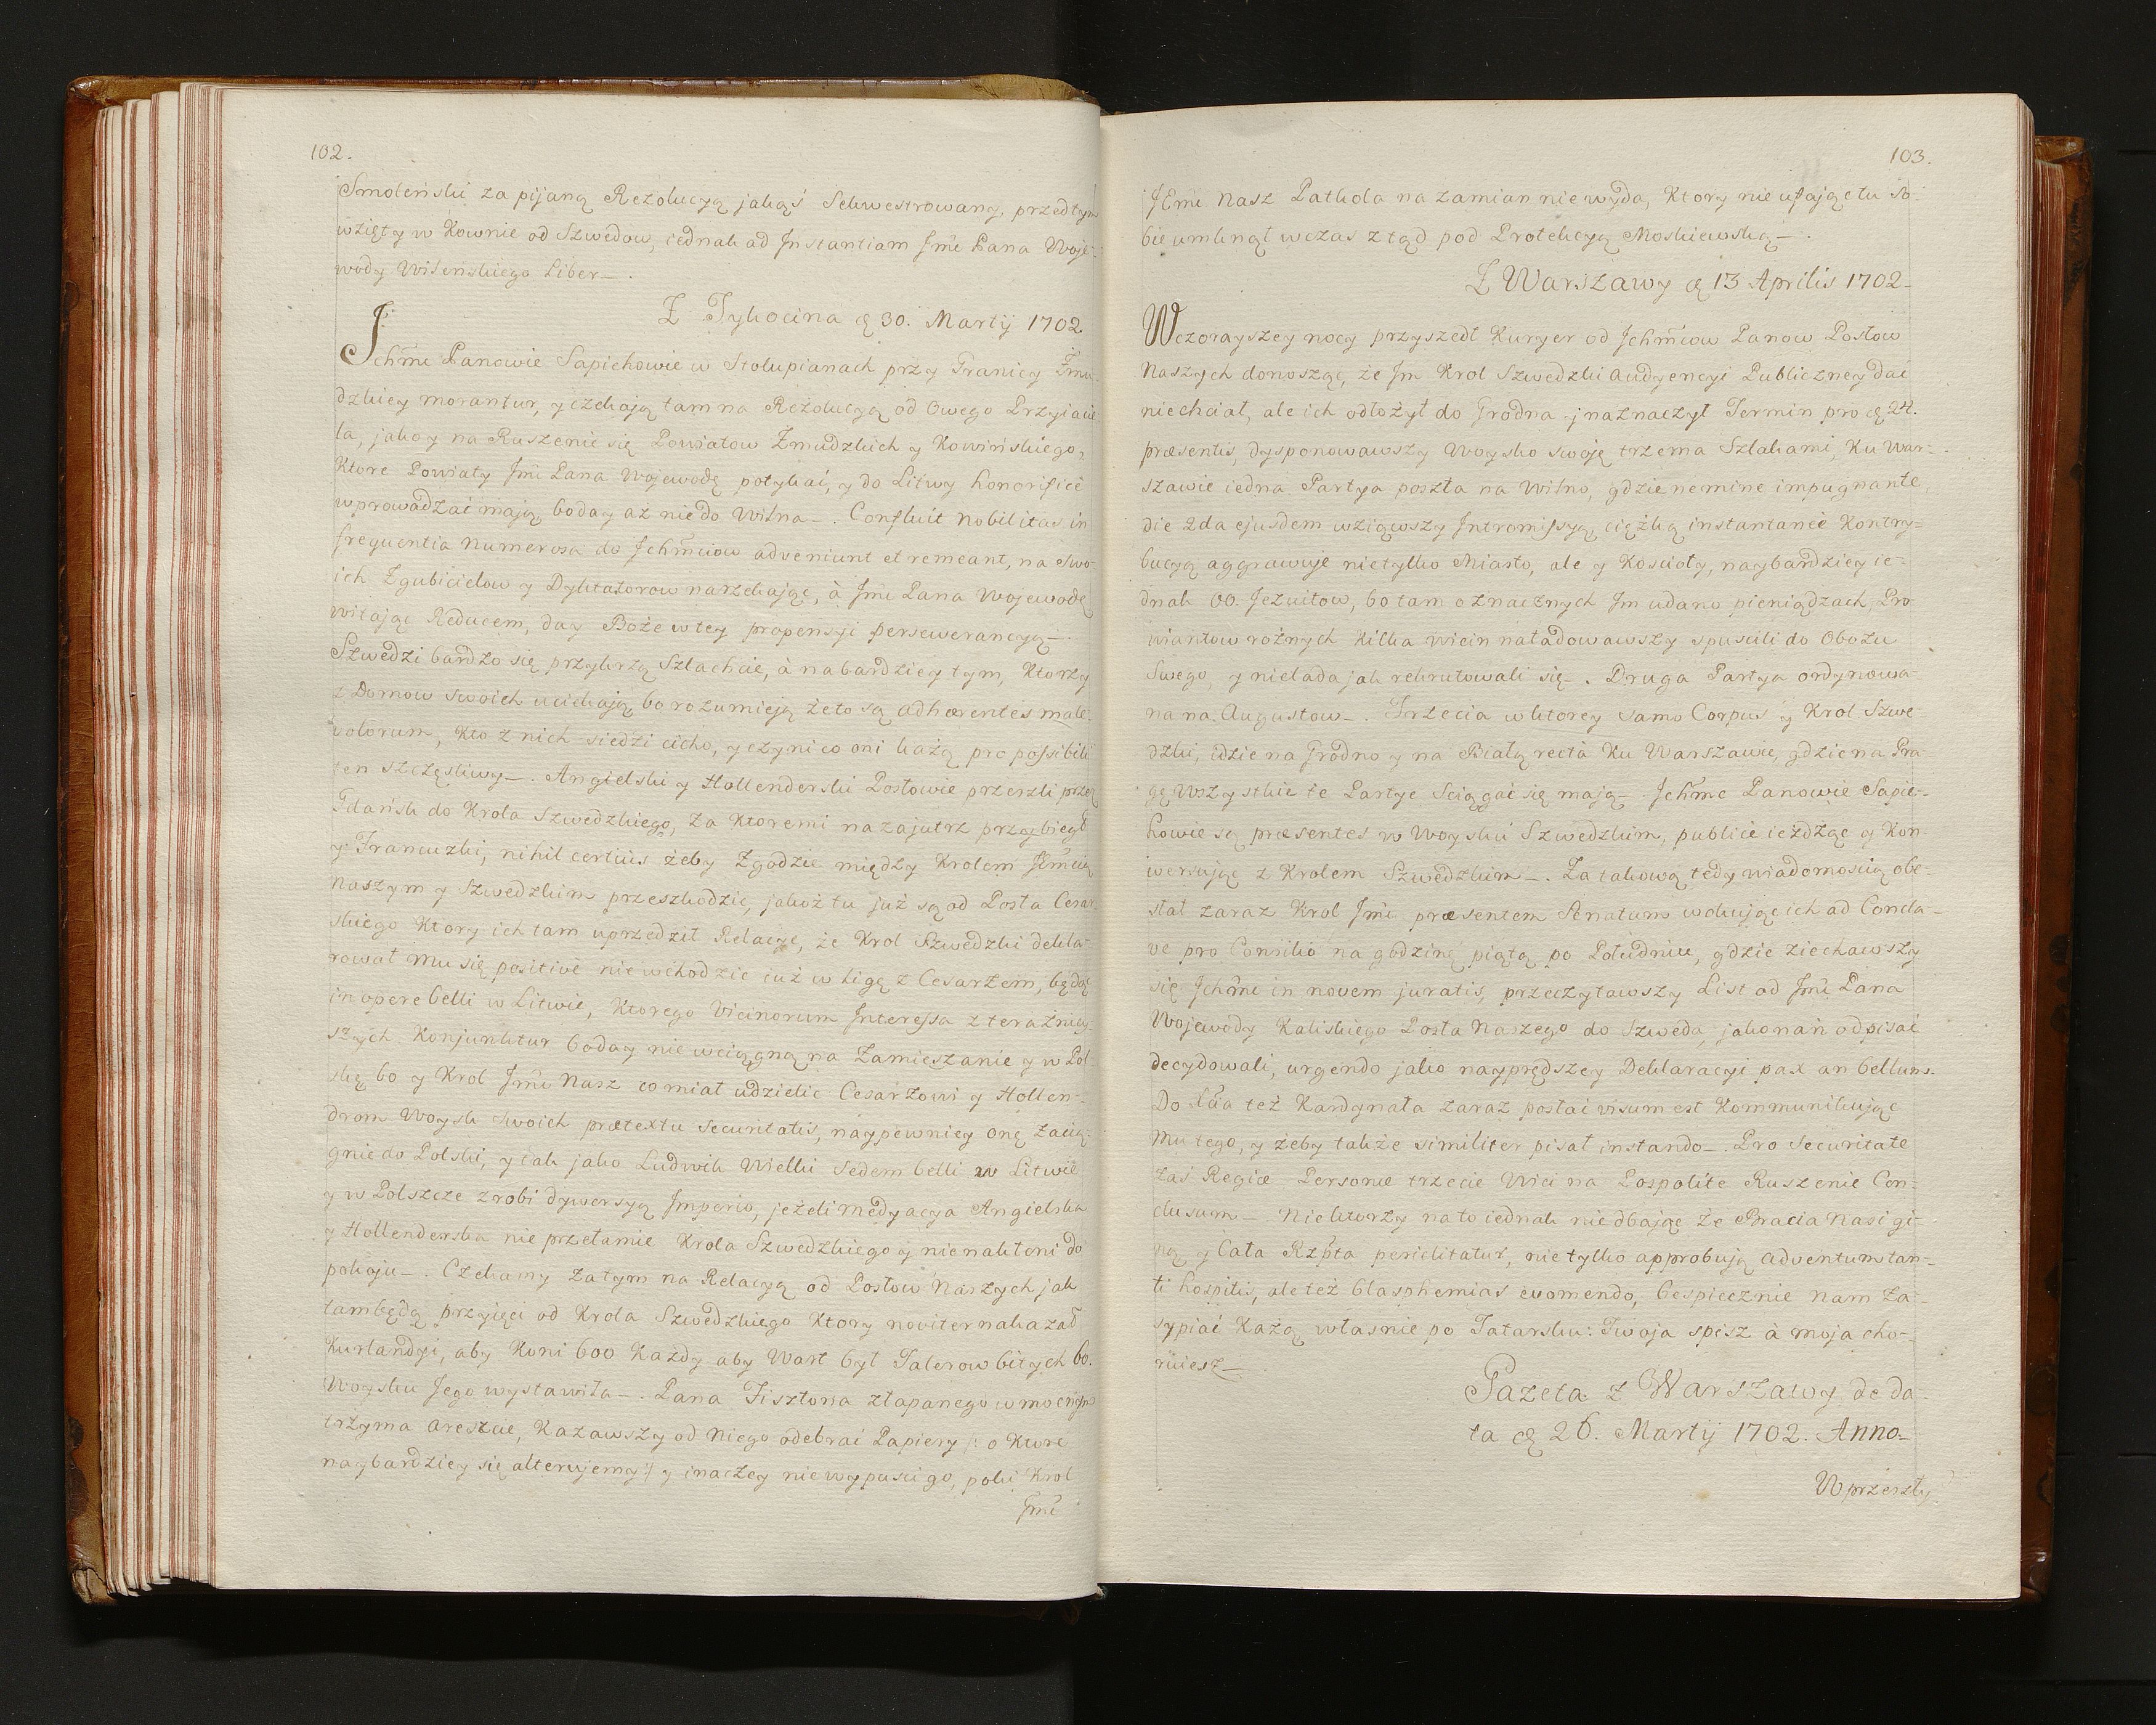 102.
Smoleński za pijaną Rezolucyą jakąś Sekwestrowany, przedtym
wzięty w Kownie od Szwedow, iednak ad Instantiam Jm̃ć Pana Woje-
wody Wileńskiego Liber—.
Z Tykocina ą 30. Martij 1702.
Jchm̃ć Panowie Sapiehowie w Stolupianach przy Granicy Żmu-
dzkiey morantur, y czekają tam na Rezolucyą od Owego Przyiacie
la, jako y na Ruszenie się Powiatow Zmudzkich y Kowińskiego,
Ktore Powiaty Jm̃ć Pana Wojewodę potykać, y do Litwy honorificè
wprowadzać mają boday aż nie do Wilna—. Confluit Nobilitas in
frequentia numerosa do Jchm̃ciow adveniunt et remeant, na swo-
ich Zgubicielow y Dyktatorow narzekając, à Jm̃ć Pana Wojewodę
witając Reducem, day Boże w tey propensyi perseverancyą—.
Szwedzi bardzo się przykrzą Szlachcie, à nabardziey tym, Ktorzy
z Domow swoich uciekają, bo rozumieją że to są adhærentes male-
volorum, Kto z nich siedzi cicho, y czyni co oni każą pro possibili
ten szczęsliwy—. Angielski y Hollenderski Posłowie przeszli przez
Gdańsk do Krola Szwedzkiego, za Ktoremi nazajutrz przybiegł
y Francuzki, nihil certius żeby Zgodzie między Krolem JEm̃cią
Naszym y Szwedzkim przeszkodzić, jakoż tu już są od Posła Cesar-
skiego Ktory ich tam uprzedził Relacye, że Krol Szwedzki dekla-
rował mu się positivè nie wchodzić iuż w ligę z Cesarzem, będąc
in opere belli w Litwie, Ktorego Vicinorum Interessa z teraźniey-
szych Konjunktur boday nie wciągną na Zamieszanie y w Pol-
skę bo y Krol Jm̃ć Nasz co miał udzielić Cesarzowi y Hollen-
drom Woysk swoich prætextu securitatis, naypewniey one zacią-
gnie do Polski, y tak jako Ludwik Wielki Sedem belli w Litwie
y w Polszcze zrobi dywersyą Imperio, jeżeli medyacya Angielska
y Hollenderska nie przełamie Krola Szwedzkiego y nie nakłoni do
pokoju—. Czekamy zatym na Relacyą od Posłow Naszych jak
tam będą przyjęci od Krola Szwedzkiego Ktory noviter nakazał
Kurlandyi, aby Koni 600 Każdy aby Wart był Talerow bitych 60.
Woysku Jego wystawiła—. Pana Fisztona złapanego w mocnym
trzyma areszcie, Kazawszy od Niego odebrać Papiery /: o Które
naybardziey się alterujemy :/ y inaczey nie wypuści go, poki Krol
Jm̃ć
103.
JEm̃ć Nasz Patkola na zamian nie wyda, Ktory nie ufając tu so-
bie umknął wczas ztąd pod Protekcyą Moskiewską—.
Z Warszawy ą 13 Aprilis 1702—
Wczorayszey nocy przyszedł Kuryer od Jchm̃ciow Panow Posłow
Naszych donosząc, że Jm Krol Szwedzki Audyencyi Publiczney dać
niechciał, ale ich odłożył do Grodna y naznaczył Termin pro ą 24.
præsentis, dysponowawszy Woysko swoję trzema Szlakami, Ku War-
szawie iedna Partya poszła na Wilno, gdzie nemine impugnante
die 2da ejusdem wziąwszy Intromissyą, ciężką instantanèe Kontry-
bucyą aggrawuje nietylko Miasto, ale y Koscioły, naybardziey ie-
dnak OO. Jezuitow, bo tam o znacznych Jm udano pieniądzach, Pro
wiantow rożnych Kilka wicin naładowawszy spuscili do Obozu
Swego, y nielada jak rekrutowali się—. Druga Partya ordynowa-
na na Augustow—. Trzecia w ktorey samo Corpus y Krol Szwe-
dzki, idzie na Grodno y na Białą rectà Ku Warszawie, gdzie na Pra-
gę Wszystkie te Partye Sciągać się mają—. Jchm̃ć Panowie Sapie-
howie są præsentes w Woysku Szwedzkim, publicè ieżdżąc y Kon-
wersując z Krolem Szwedzkim—. Za takową tedy wiadomoscią obe-
słał zaraz Krol Jm̃ć præsentem Senatum wokując ich ad Concla-
ve pro Consilio na godzinę piątą po Południu, gdzie ziechawszy
się Jchm̃ć in novem juratis, przeczytawszy List od Jm̃ć Pana
Wojewody Kaliskiego Posła Naszego do Szweda, jako nań odpisać
decydowali, urgendo jako nayprędszey Deklaracyi pax an bellum.
Do Xcia też Kardynała zaraz posłać visum est Kommunikując
mu tego, y żeby także similiter pisał instando—. Pro Securitate
zaś Regiæ Personæ trzecie Wici na Pospolite Ruszenie Con-
clusum—. Niektorzy na to iednak nie dbając że Bracia Nasi gi-
ną y Cała Rzp̃ta periclitatur, nie tylko approbują adventum tan-
ti hospitis, ale też blasphemias evomendo, bespiecznie nam za-
sypiać Każą własnie po Tatarsku: Twoja spisz à moja cho-
ruiesz—
Gazeta z Warszawy de da-
ta ą 26. Martij 1702. Anno—
W przeszły